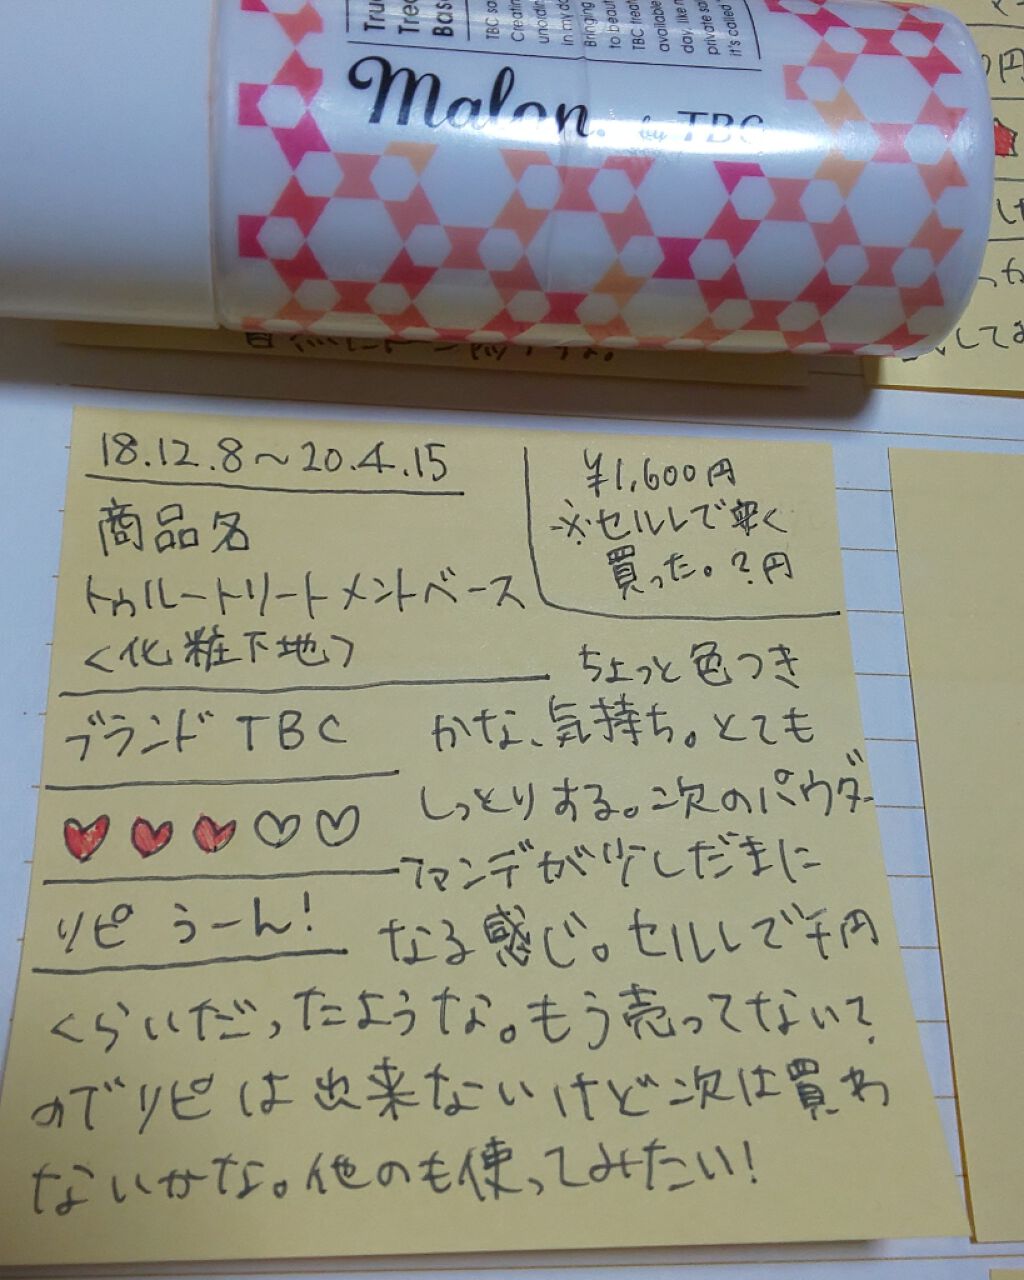 Tru
Trea
Base
TBC sa
Creatin
unordin
in my da
Bringing
to beaut
TBC treat
available
day, like m
private sa
it's called
malon. by TBC
円
18.12.8～20.4.15
¥1,600円
※セルレで安く
買った。?円
商品名
トゥルートリートメントベース
<化粧下地>
ブランド TBC
♥♥♥♡♡
リピ うーん!
ちょっと色つき
かな、気持ち。とても
しっとりする。次のパウダー
ファンデが少しだまに
なる感じ。セルレで千円
くらいだったような。もう売ってない?
のでリピは出来ないけど次は買わ
ないかな。他のも使ってみたい!